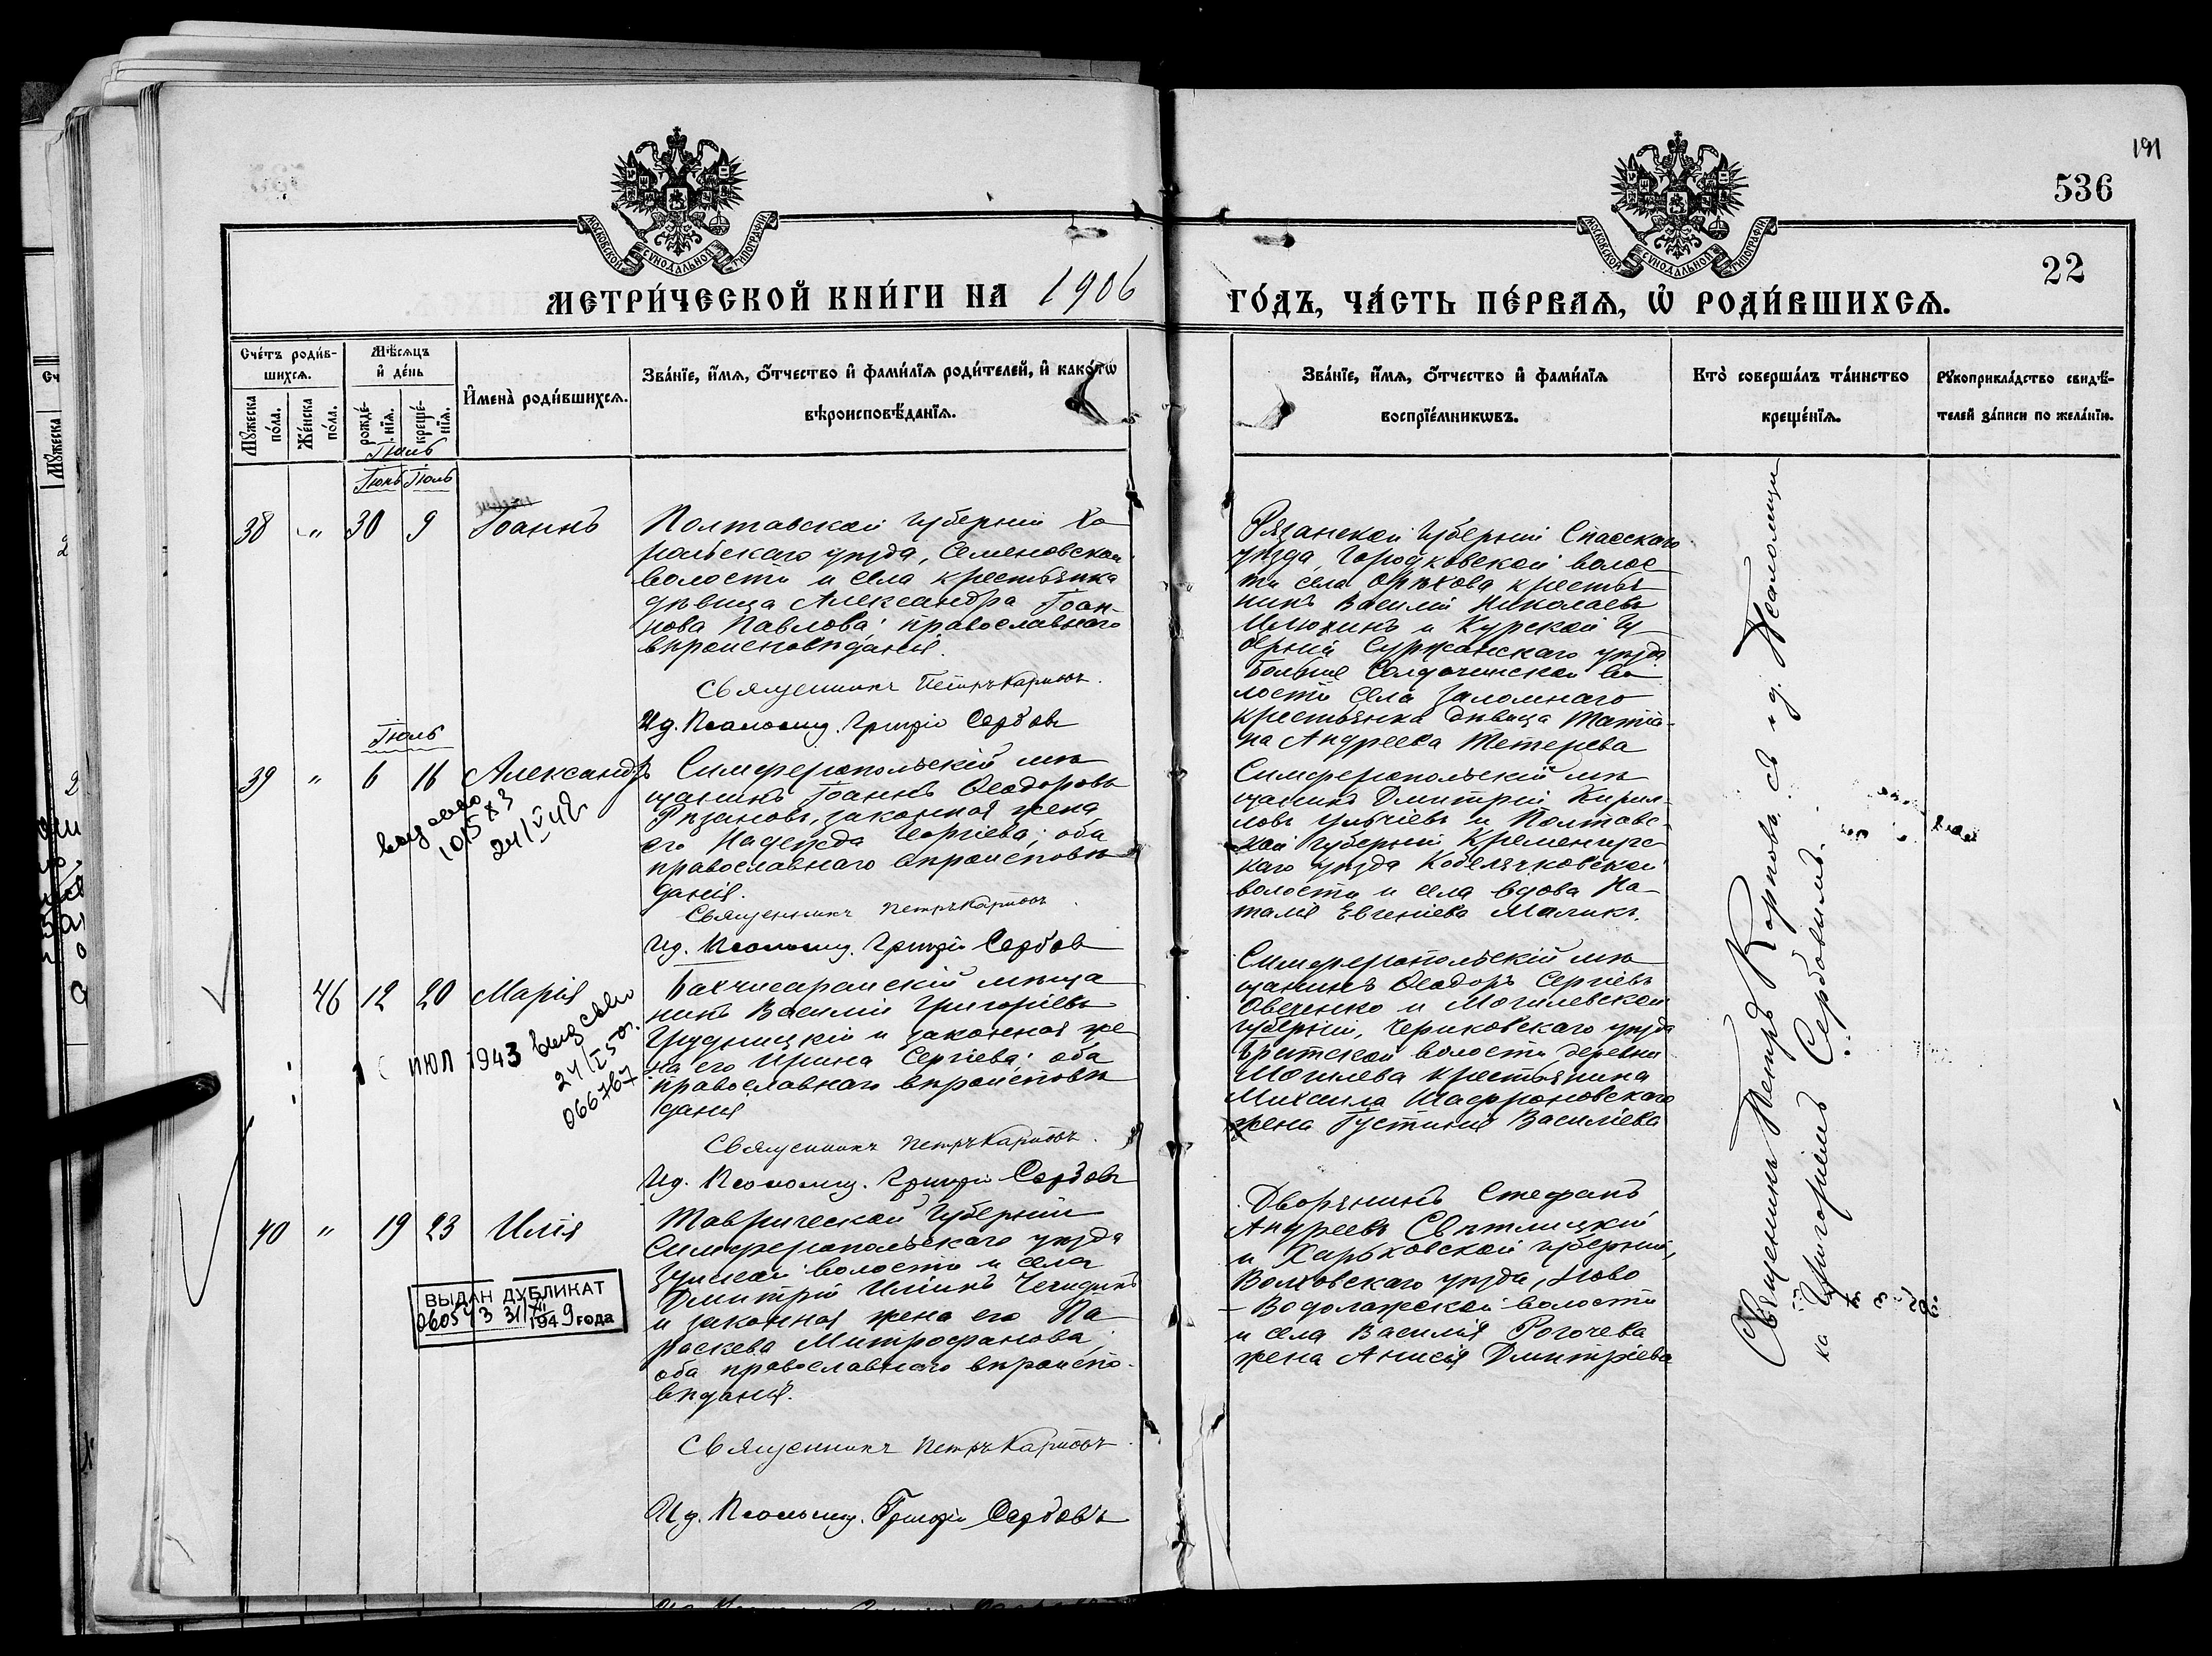 191
536
22
МОСКОВСКОЙ СѴНОДАЛЬНОЙ ТИПОГРАФІИ
МОСКОВСКОЙ СѴНОДАЛЬНОЙ ТИПОГРАФІИ
МЕТРИ́ЧЕСКОЙ КНИ́ГИ НА 1906
ГО́ДЪ, ЧА́СТЬ ПЕ́РВАѦ, Ѡ҆ РОДИ́ВШИХСѦ.
Сче́тъ роди́в-
шихсѧ.
Мꙋ́жеска
по́ла.
Же́нска
по́ла.
Мѣ́сѧцъ
и҆ де́нь
рожде́-
нїѧ.
креще́-
нїѧ.
И҆мена̀ роди́вшихсѧ.
Зва́нїе, и҆́мѧ, ѻ҆́тчество и҆ фами́лїѧ роди́телей, и҆ како́гѡ
вѣроисповѣ́данїѧ.
Зва́нїе, и҆́мѧ, ѻ҆́тчество и҆ фами́лїѧ
воспрїе́мникѡвъ.
Кто̀ соверша́лъ та́инство
креще́нїѧ.
Рꙋкоприкла́дство свидѣ́-
телей за́писи по жела́нїю.
Іюль
Іюнь Іюль
38 " 30 9 Іоаннъ
Полтавской губерніи Хо
рольскаго уѣзда, Семеновской
волости и села крестьянка
дѣвица Александра Іоан-
нова Павлова; православнаго
вѣроисповѣданія.
Священникъ Петръ Карповъ.
Ид. Псаломщ. Григорій Сербовъ
Рязанской губерніи Спасскаго
уѣзда, Городковской волос
ти села Орѣхова крестья
нинъ Василій Николаевъ
Илюхинъ и Курской гу
берніи Суржанскаго уѣзда
Больше Солдатинской во
лости села Заломнаго
крестьянка дѣвица Татіа-
на Андреева Тетерева
Іюль
39 " 6 16 Александръ
1015 х3
24/V 48
Симферопольскій мѣ
щанинъ Іоаннъ Ѳеодоровъ
Рѣзановъ, законная жена
его Надежда Георгіева; оба
православнаго вѣроисповѣ
данія.
Священникъ Петръ Карповъ.
Ид. Псаломщ. Григорій Сербовъ
Симферопольскій мѣ
щанинъ Дмитрій Кирил-
ловъ и Полтавс-
кой губерніи Кременчугс
каго уѣзда Кобелячковской
волости и села вдова На-
талія Евгеніева Маликъ.
46 12 20 Марія
ИЮЛ 1943
24/I 50г.
066767
Бахчисарайскій мѣща
нинъ Василій Григорьевъ
Грудницкій и законная же
на его Ирина Сергіева; оба
православнаго вѣроисповѣ
данія
Священникъ Петръ Карповъ.
Ид. Псаломщ. Григорій Сербовъ
Симферопольскій мѣ
щанинъ Ѳеодоръ Сергіевъ
Овеченко и Могилевской
губерніи, Чериковскаго уѣзда
волости деревни
Могилева крестьянина
Михаила Шафроновскаго
жена Іустинія Василіева
40 " 19 23 Илія
ВЫДАН ДУБЛИКАТ
060543 31/XII
1949 года
Таврической губерніи
Симферопольскаго уѣзда
Зуйской волости и села
Дмитрій Иліинъ
и законная жена его Па
раскева Митрофанова,
оба православнаго вѣроиспо-
вѣданія.
Священникъ Петръ Карповъ.
Ид. Псаломщ. Григорій Сербовъ
Дворянинъ Стефанъ
Андреевъ Свѣтлицкій
и Харьковской губерніи,
Волковскаго уѣзда, Ново
-Водолажской волости
и села Василія Рогочева
жена Анисія Дмитріева
Священникъ Петръ Карповъ съ и.д. Псаломщи
ка Григоріемъ Сербовымъ.